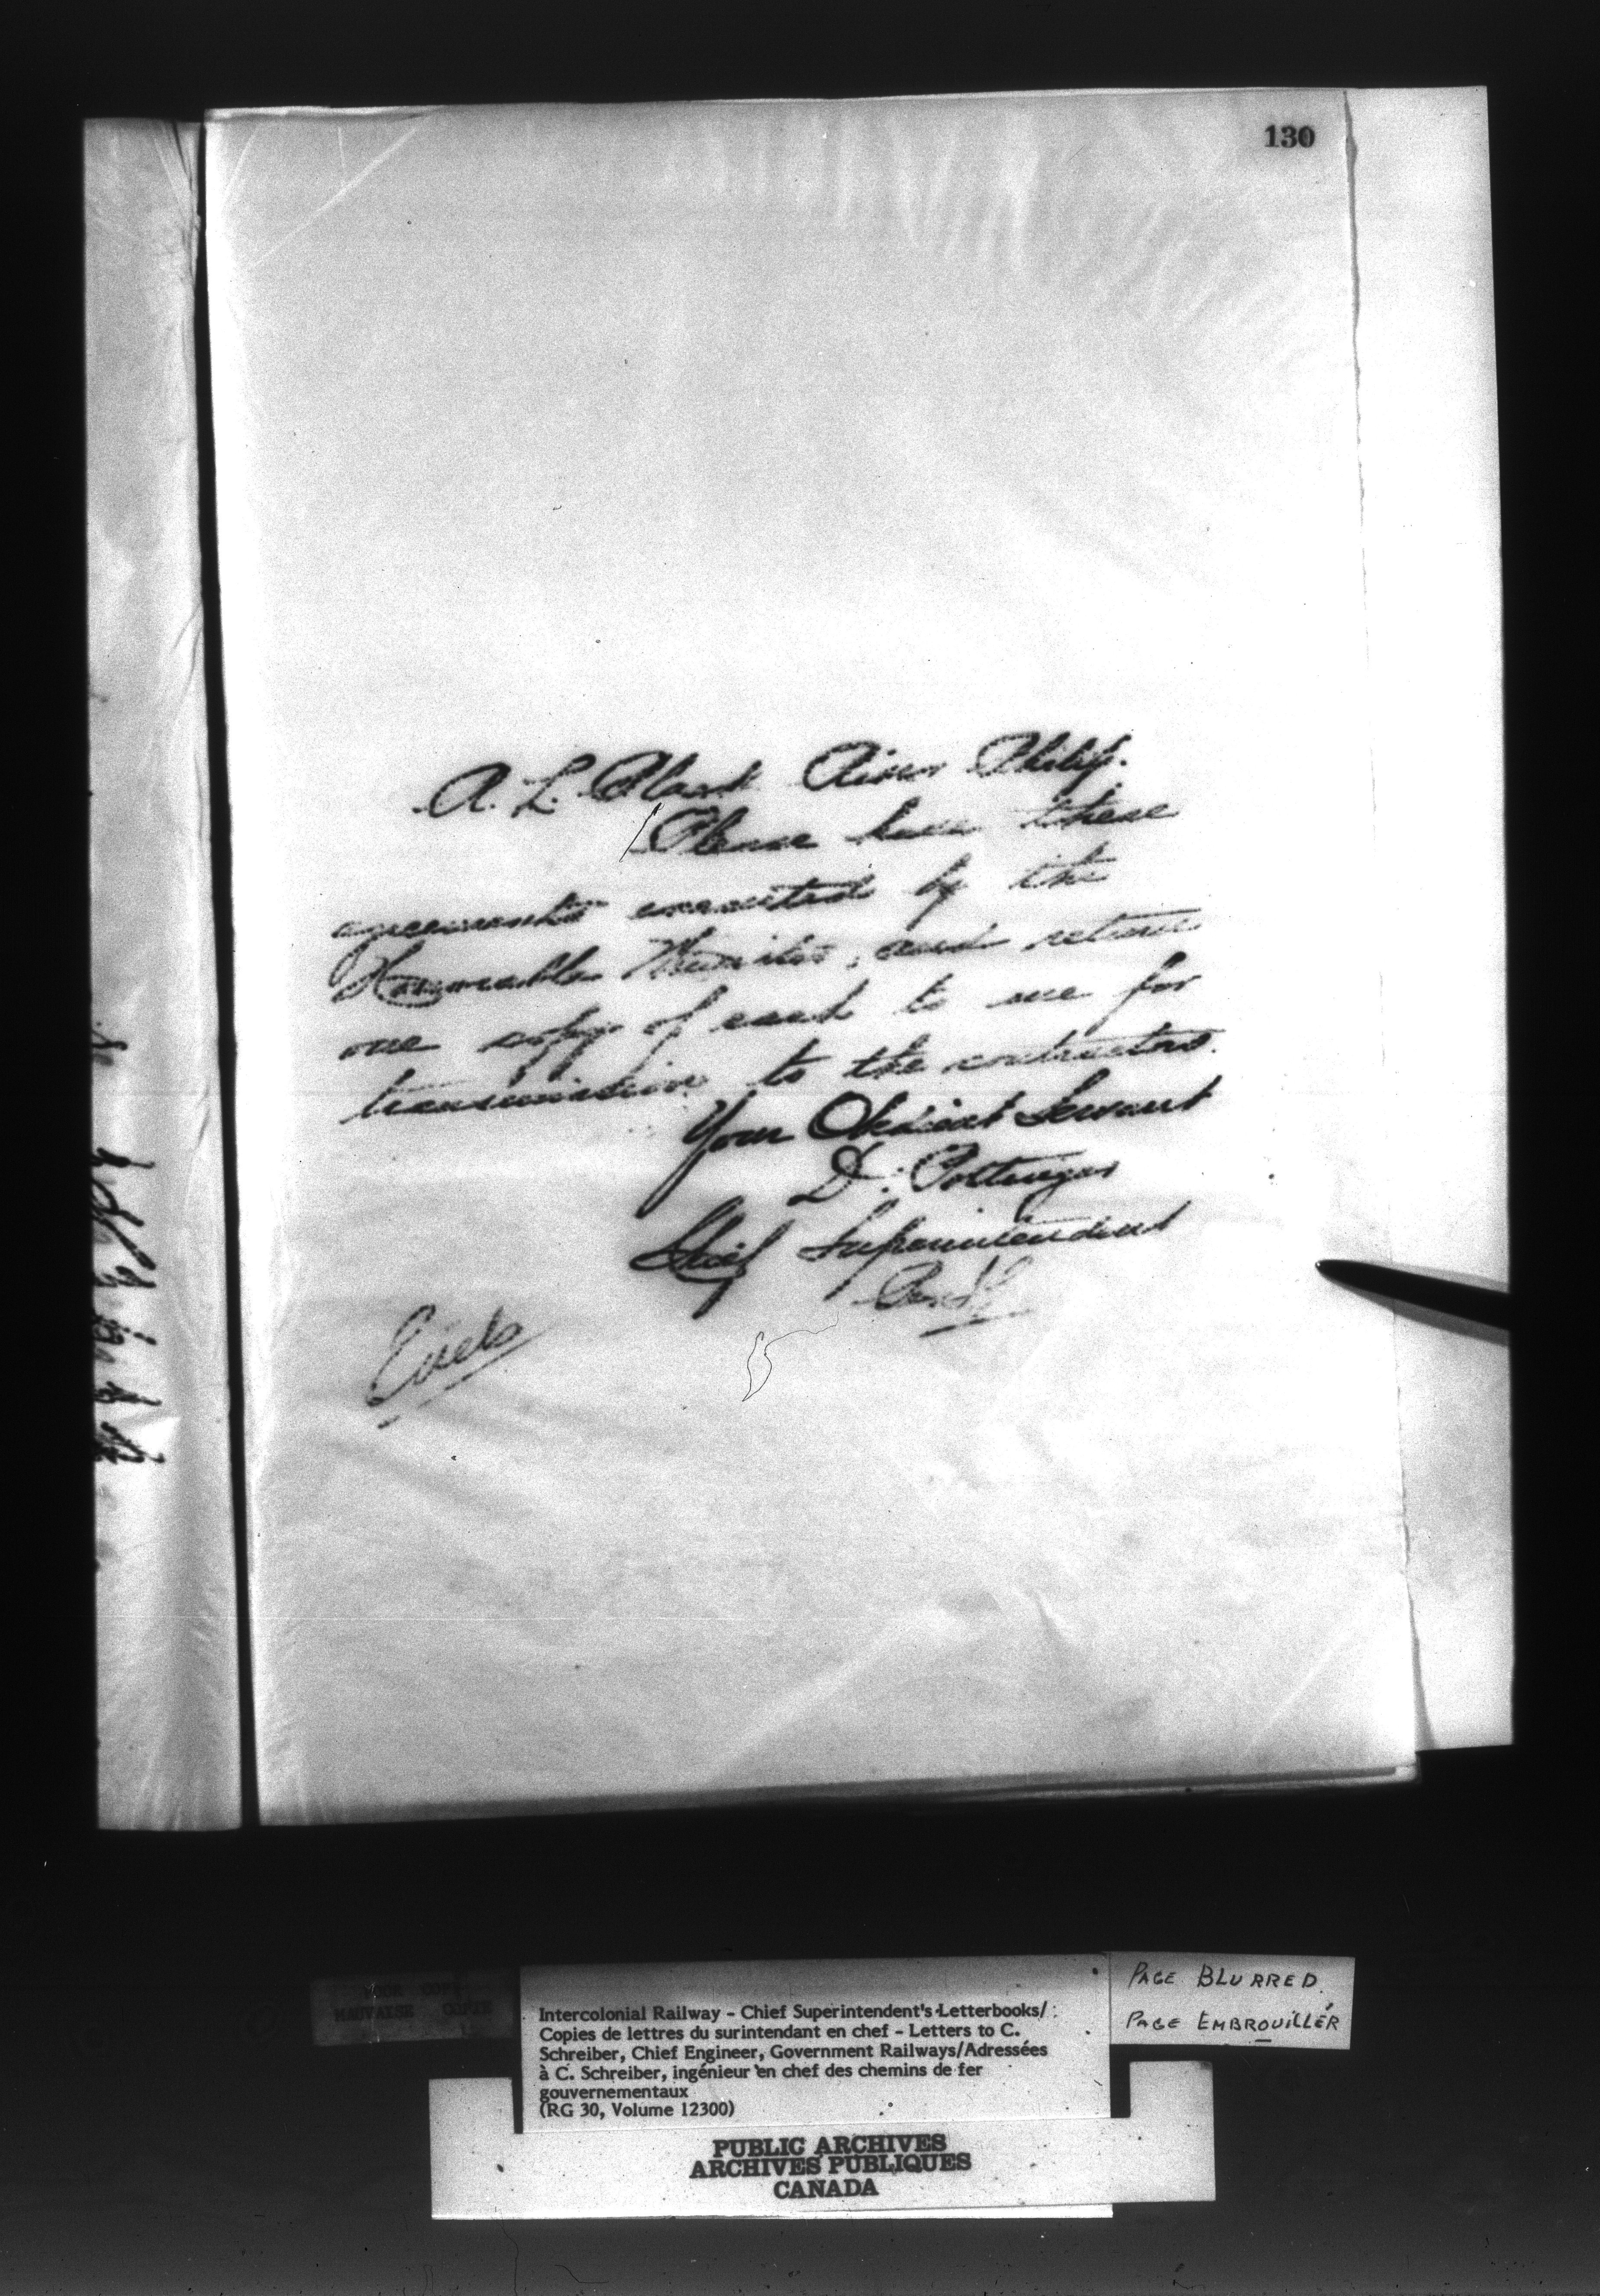 130
A. L. Plant River Philip.
Please have these
agreements executed by the
Honourable Minister, and return
one copy of each to me for
transmission to the contractors.
Your Obedient Servant
D. Pottinger
Chief Superintendent
Encls
PAGE BLURRED.
PAGE EMBROUILLÉR
POOR COPY
MAUVAISE COPIE
Intercolonial Railway - Chief Superintendent's Letterbooks/
Copies de lettres du surintendant en chef - Letters to C.
Schreiber, Chief Engineer, Government Railways/Adressées
à C. Schreiber, ingénieur en chef des chemins de fer
gouvernementaux
(RG 30, Volume 12300)
PUBLIC ARCHIVES
ARCHIVES PUBLIQUES
CANADA